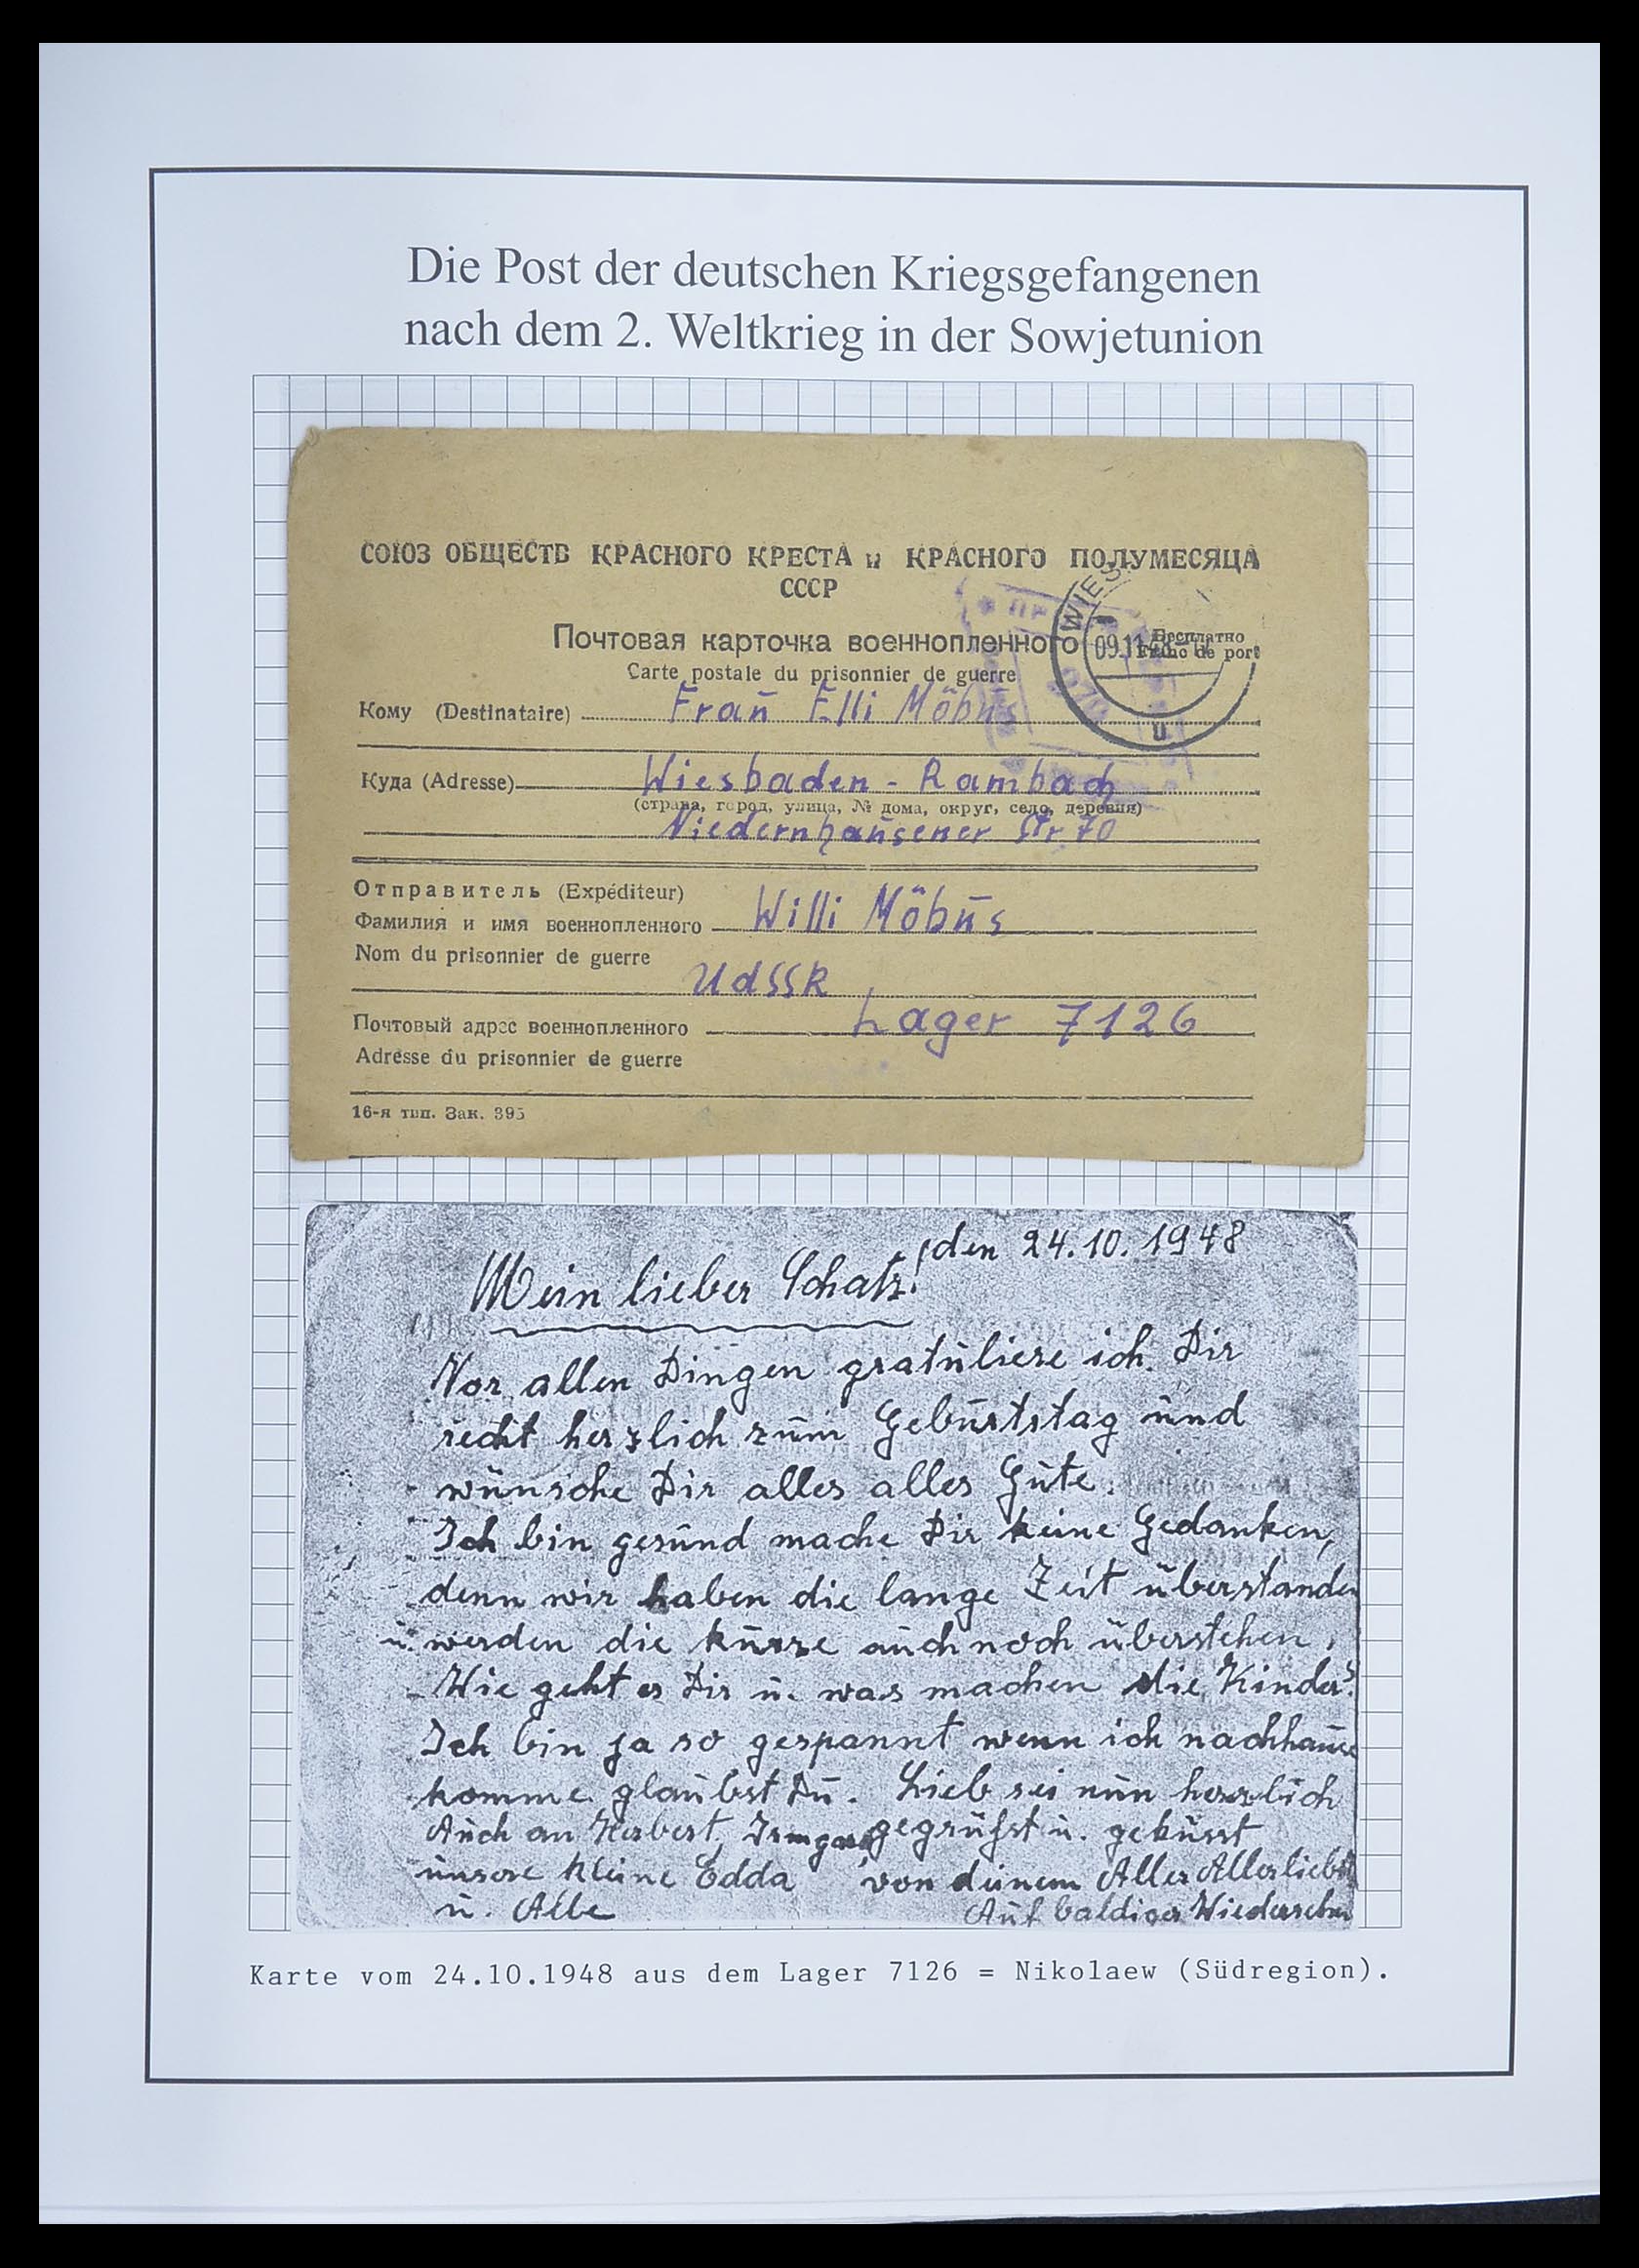 Die Post der deutschen Kriegsgefangenen
nach dem 2. Weltkrieg in der Sowjetunion
СОЮЗ ОБЩЕСТВ КРАСНОГО КРЕСТА и КРАСНОГО ПОЛУМЕСЯЦА
СССР
Почтовая карточка военнопленного
Бесплатно
Franc de port
WIES
09.11.
Carte postale du prisonnier de guerre
Кому (Destinataire) Frau Elli Möbus
ü
Куда (Adresse) Wiesbaden - Rambach
(страна, город, улица, № дома, округ, село, деревня)
Niedernhausener Str. 70
Отправитель (Expéditeur)
Фамилия и имя военнопленного Willi Möbus
Nom du prisonnier de guerre
UdSSR
Почтовый адрес военнопленного Lager 7126
Adresse du prisonnier de guerre
16-я тип. Зак. 395
den 24.10.1948
Mein lieber Schatz!
Vor allen Dingen gratuliere ich Dir
recht herzlich zum Geburtstag und
wünsche Dir alles alles Gute.
Ich bin gesund mache Dir keine Gedanken,
denn wir haben die lange Zeit überstanden
u. werden die kurze auch noch überstehen.
Wie geht es Dir u. was machen die Kinder?
Ich bin ja so gespannt wenn ich nachhause
komme glaubst Du. Lieb sei nun herzlich
Auch an Herbert, Irmgard gegrüßt u. geküsst
unsere kleine Edda von deinem Aller Allerliebst
u. Alle Auf baldiges Wiedersehn
Karte vom 24.10.1948 aus dem Lager 7126 = Nikolaew (Südregion).